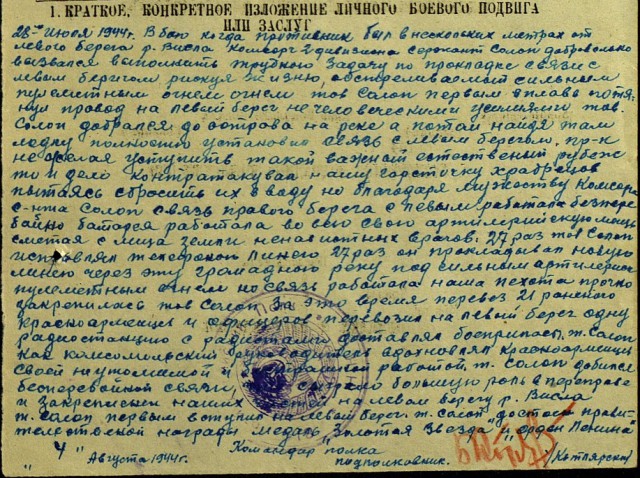 1. КРАТКОЕ, КОНКРЕТНОЕ ИЗЛОЖЕНИЕ ЛИЧНОГО БОЕВОГО ПОДВИГА
ИЛИ ЗАСЛУГ
28 июля 1944г. В бою когда противник был в нескольких метрах от
левого берега р. Висла Комсорг 2 дивизиона сержант Солоп добровольно
вызвался выполнить трудную задачу по прокладке связи с
левым берегом рискуя жизнью, обстреливаемый сильным
пулеметным огнем тов Солоп первым вплавь потя-
нул провод на левый берег нечеловеческими усилиями тов.
Солоп добрался до острова на реке а потом найдя там
лодку полностью установил связь с левым берегом. пр-к
не желая уступить такой важный естественый рубеж
то и дело контратаковал нашу горсточку храбрецов
пытаясь сбросить их в ваду но благодаря мужеству Комсорга
с-нта Солоп связь правого берега с левым работала безпере
бойно работала во всю свою артилерийскую мощь
сметая с лица земли ненавистных врагов. 27 раз тов Солоп
исправлял телефоной линию 27 раз он прокладывал новую
линию через эту громадную реку под сильным артилерийс.
пулеметным огнем но связь работала наша пехота прочно
закрепилась тов Солоп За это время перевез 21 раненого
Красноармейца и офицеров перевозил на левый берег одну
радиостанцию с радистами доставлял боеприпасы, т. Солоп
как комсомольский руководитель вдохновлял Красноармейцев
своей неутомимой и работой, т. Солоп добился
бесперебойной связи, сыграло большую роль в переправе
и закреплении наших на левом берегу р. Висла
т. Солоп первым вступил на левый берег. т. Солоп достоин прави-
тельственой награды медаль "Золотая Звезда" и "орден Ленина"
Командир полка
"4" Августа 1944г. подполковник. /Котлярский/